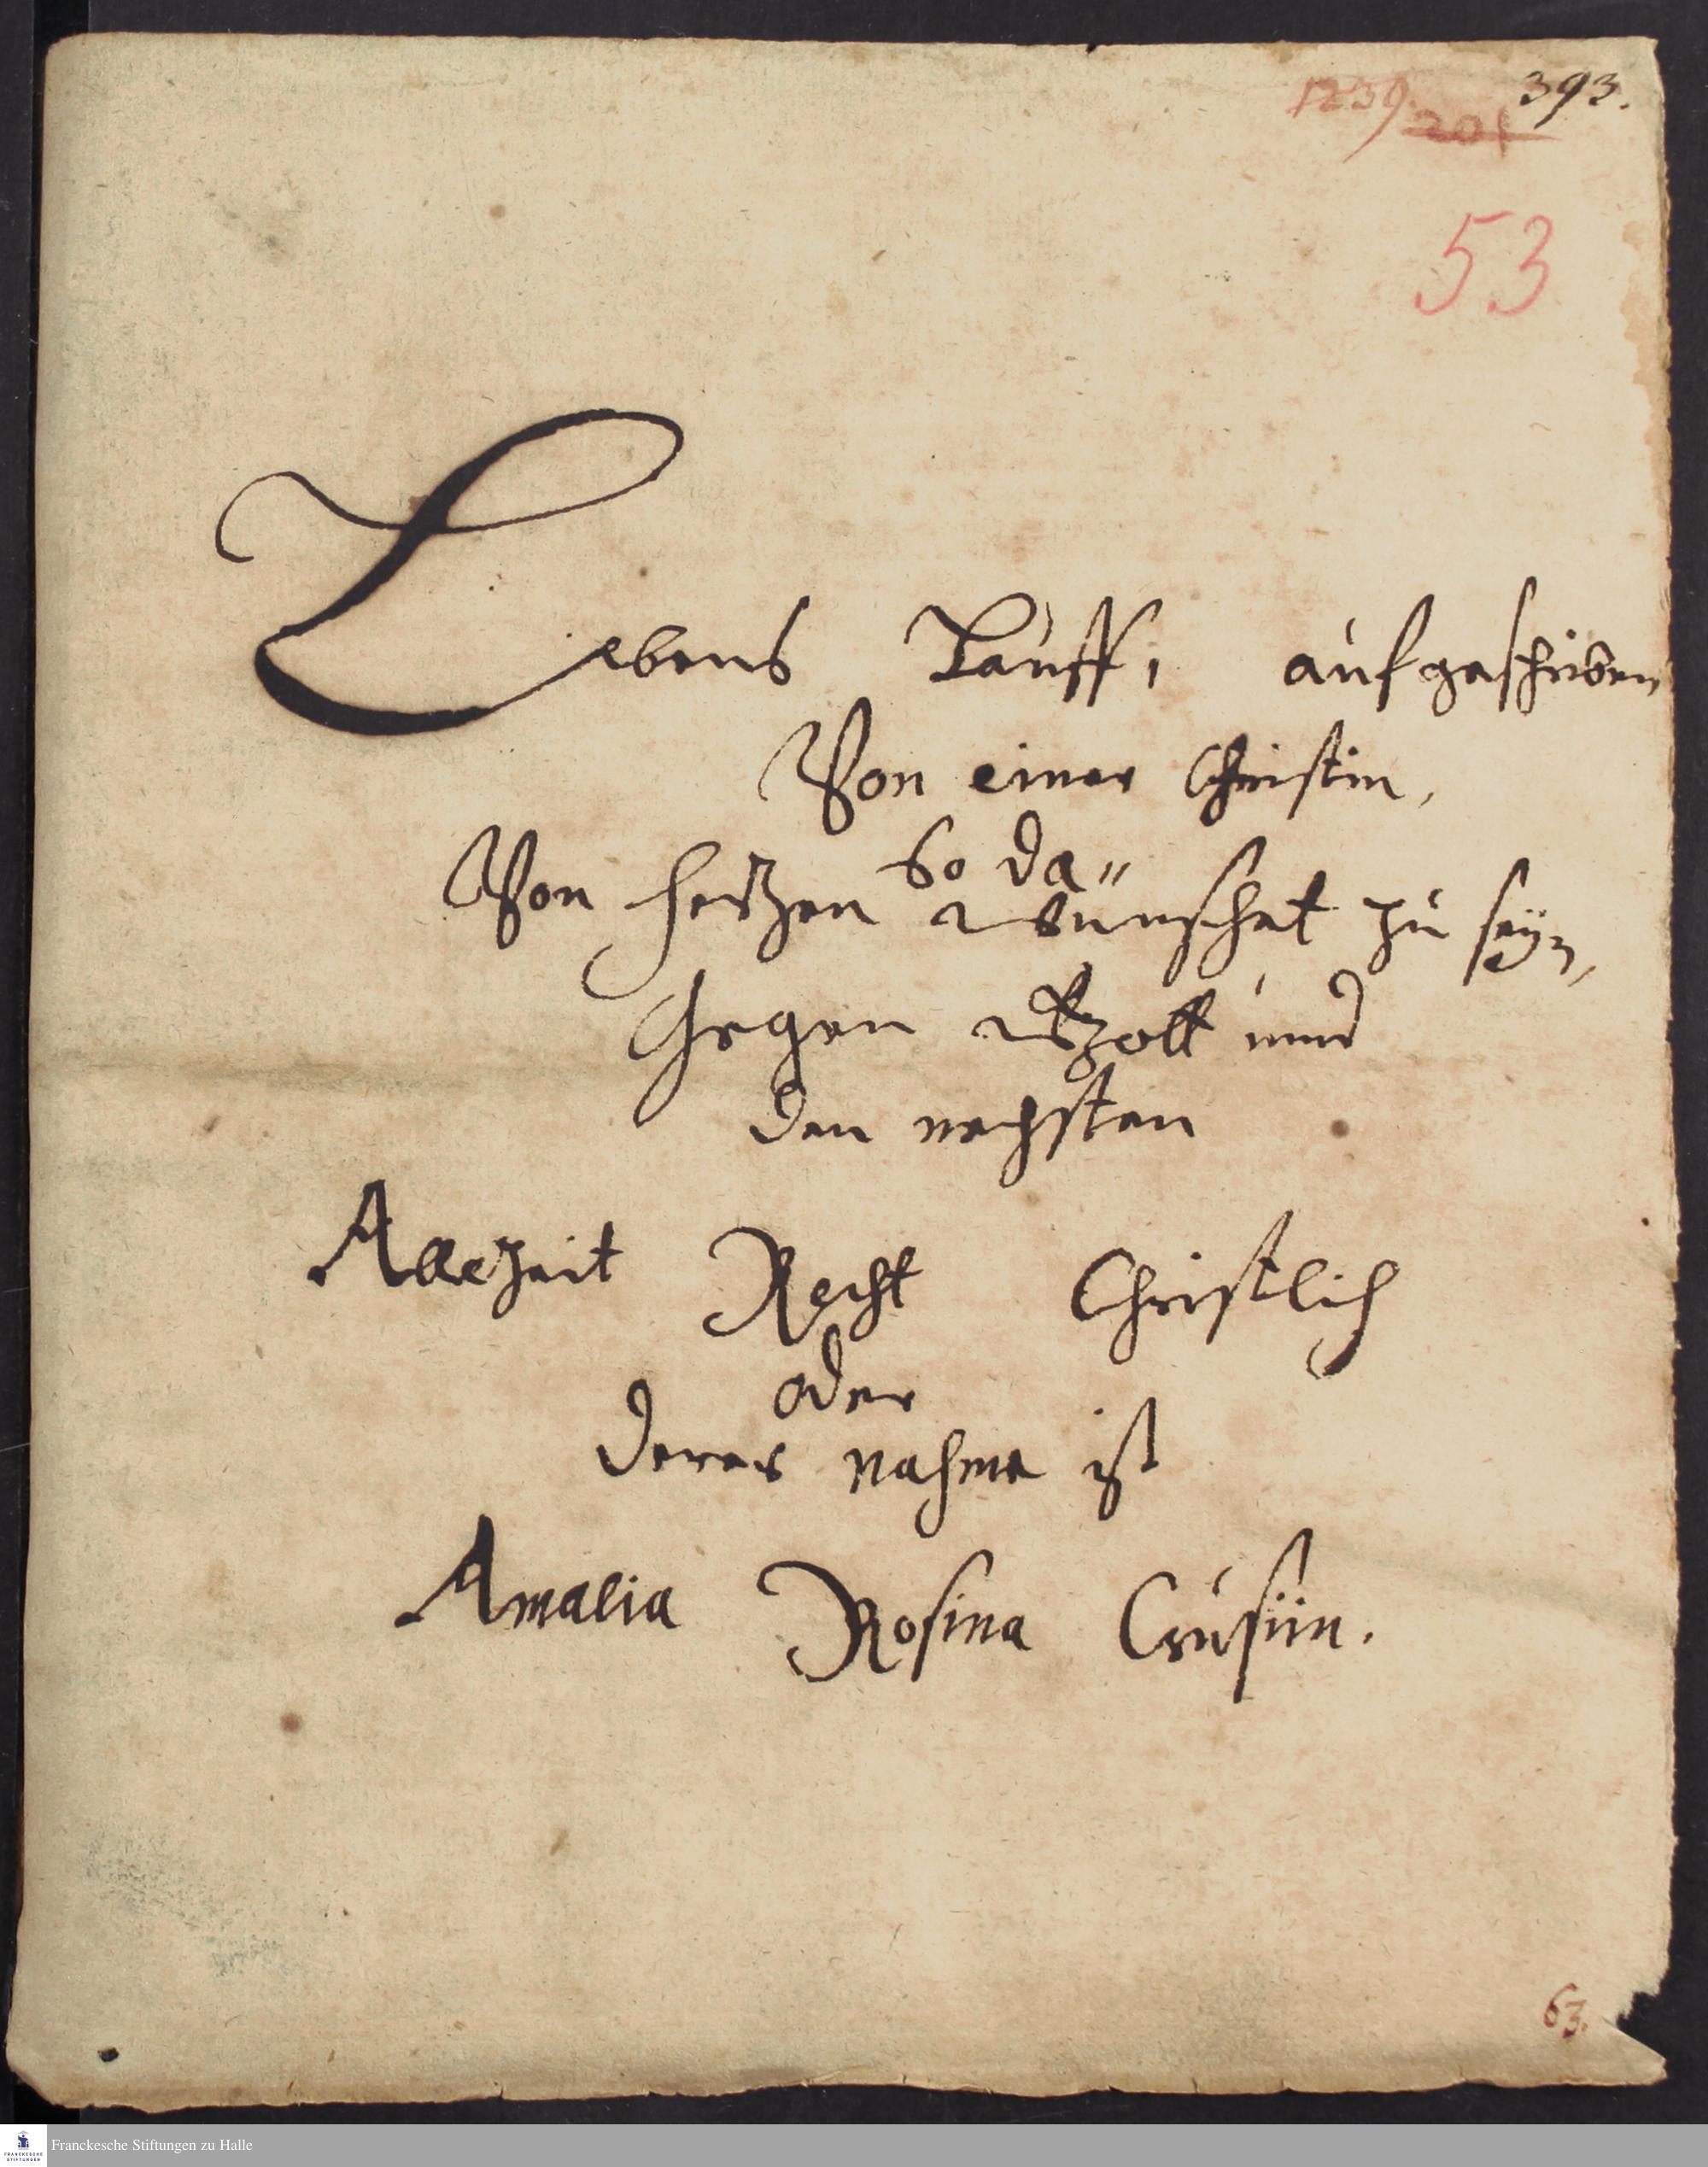 1239. 393.
201
53
Lebens Lauff, aufgeschriben
Von einer Christin,
So da"
Von hertzen wünschet zu seyn,
Gegen Gott und
den nechsten
Allezeit Recht Christlich
oder
derer nahme ist
Amalia Rosina Crusiin.
63.
Franckesche Stiftungen zu Halle
FRANCKESCHE
STIFTUNGEN